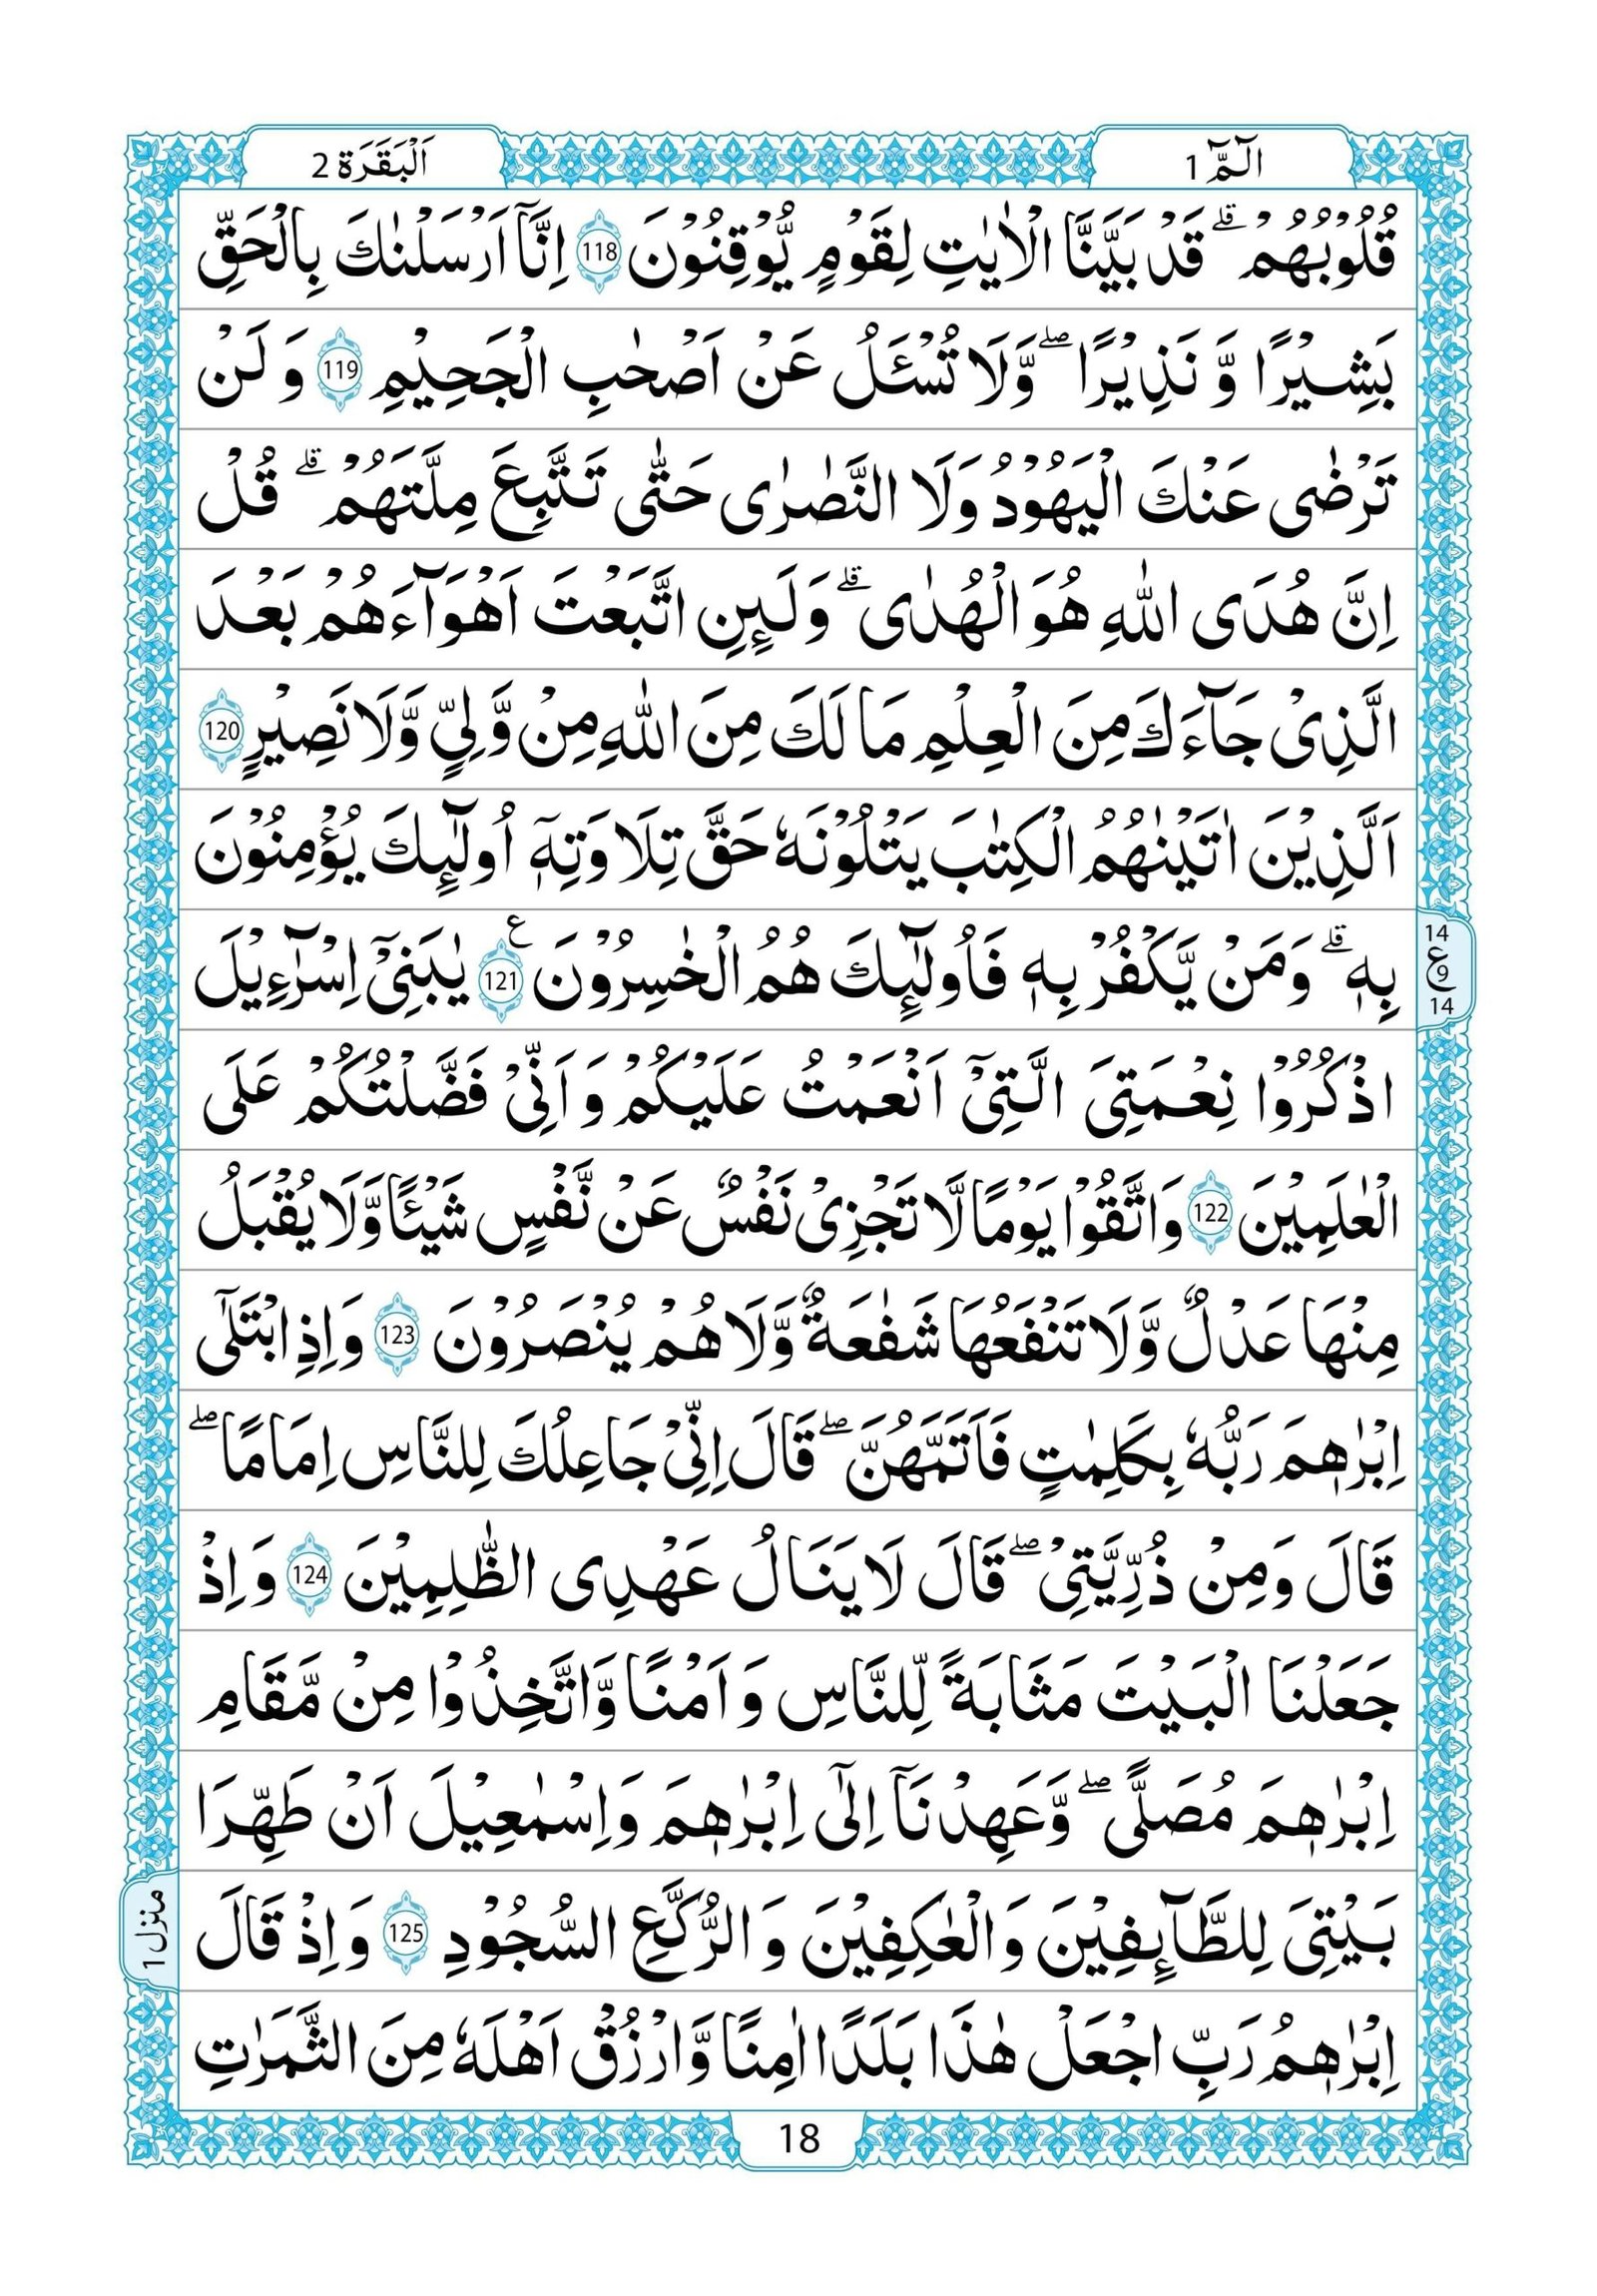 الٓمّٓ 1
اَلْبَقَرَة 2
قُلُوْبُهُمْ ؕ قَدْ بَیَّنَّا الْاٰیٰتِ لِقَوْمٍ یُّوْقِنُوْنَ 118 اِنَّاۤ اَرْسَلْنٰكَ بِالْحَقِّ
بَشِیْرًا وَّ نَذِیْرًا ۖ وَّلَا تُسْـَٔلُ عَنْ اَصْحٰبِ الْجَحِیْمِ 119 وَ لَنْ
تَرْضٰی عَنْكَ الْیَهُوْدُ وَلَا النَّصٰرٰی حَتّٰی تَتَّبِعَ مِلَّتَهُمْ ۗ قُلْ
اِنَّ هُدَی اللّٰهِ هُوَ الْهُدٰی ۗ وَلَىِٕنِ اتَّبَعْتَ اَهْوَآءَهُمْ بَعْدَ
الَّذِیْ جَآءَكَ مِنَ الْعِلْمِ مَا لَكَ مِنَ اللّٰهِ مِنْ وَّلِیٍّ وَّلَا نَصِیْرٍ 120
اَلَّذِیْنَ اٰتَیْنٰهُمُ الْكِتٰبَ یَتْلُوْنَهٗ حَقَّ تِلَاوَتِهٖۤ اُولٰٓىِٕكَ یُؤْمِنُوْنَ
بِهٖ ۗ وَمَنْ یَّكْفُرْ بِهٖ فَاُولٰٓىِٕكَ هُمُ الْخٰسِرُوْنَ 121 ع یٰبَنِیْۤ اِسْرَآءِیْلَ
14
ع 9
14
اذْكُرُوْا نِعْمَتِیَ الَّتِیْۤ اَنْعَمْتُ عَلَیْكُمْ وَ اَنِّیْ فَضَّلْتُكُمْ عَلَی
الْعٰلَمِیْنَ 122 وَاتَّقُوْا یَوْمًا لَّا تَجْزِیْ نَفْسٌ عَنْ نَّفْسٍ شَیْـًٔا وَّلَا یُقْبَلُ
مِنْهَا عَدْلٌ وَّلَا تَنْفَعُهَا شَفٰعَةٌ وَّلَا هُمْ یُنْصَرُوْنَ 123 وَاِذِ ابْتَلٰۤی
اِبْرٰهٖمَ رَبُّهٗ بِكَلِمٰتٍ فَاَتَمَّهُنَّ ۖ قَالَ اِنِّیْ جَاعِلُكَ لِلنَّاسِ اِمَامًا ۖ
قَالَ وَمِنْ ذُرِّیَّتِیْ ۖ قَالَ لَا یَنَالُ عَهْدِی الظّٰلِمِیْنَ 124 وَاِذْ
جَعَلْنَا الْبَیْتَ مَثَابَةً لِّلنَّاسِ وَ اَمْنًا وَّاتَّخِذُوْا مِنْ مَّقَامِ
اِبْرٰهٖمَ مُصَلًّی ۖ وَّعَهِدْنَاۤ اِلٰۤی اِبْرٰهٖمَ وَاِسْمٰعِیْلَ اَنْ طَهِّرَا
بَیْتِیَ لِلطَّآىِٕفِیْنَ وَ الْعٰكِفِیْنَ وَ الرُّكَّعِ السُّجُوْدِ 125 وَ اِذْ قَالَ
منزل 1
اِبْرٰهٖمُ رَبِّ اجْعَلْ هٰذَا بَلَدًا اٰمِنًا وَّارْزُقْ اَهْلَهٗ مِنَ الثَّمَرٰتِ
18